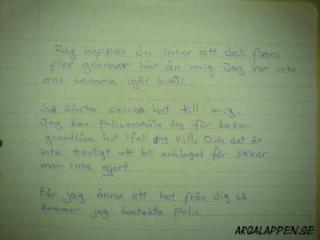 Jag hoppas du inser att det finns
fler grannar här än mig. Jag var inte
ens hemma igår kväll.
Så sluta skicka hot till mig.
Jag kan polisanmäla dig för dessa
grundlösa hot ifall du vill. Och det är
inte trevligt att bli anklagad för saker
man inte gjort.
Får jag ännu ett hot från dig så
kommer jag kontakta polis.
ARGALAPPEN.SE